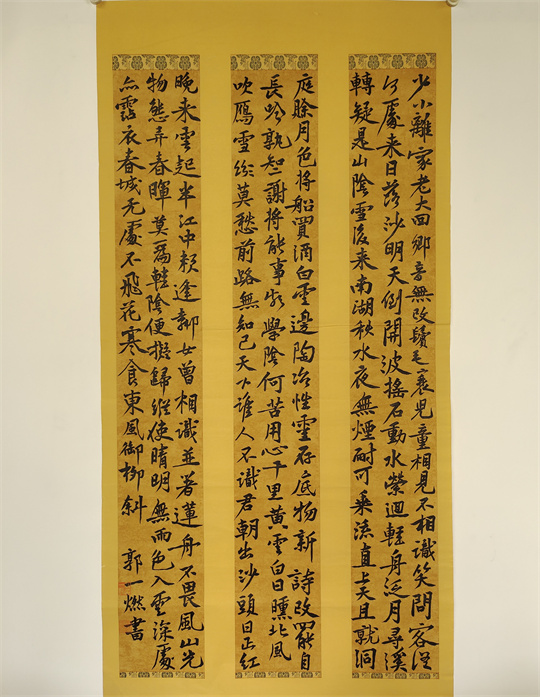 少小離家老大回鄉音無改鬢毛衰兒童相見不相識笑問客從
何處来日落沙明天倒開波搖石動水縈迴輕舟泛月尋溪
轉疑是山陰雪後来南湖秋水夜無煙耐可乘流直上天且就洞
庭賒月色將船買酒白雲邊陶冶性靈存底物新詩改罷自
長吟孰知二謝將能事頗學陰何苦用心千里黃雲白日曛北風
吹鴈雪紛莫愁前路無知己天下誰人不識君朝出沙頭日正紅
晚来雲起半江中賴逢鄰女曾相識並著蓮舟不畏風山光
物態弄春暉莫爲輕陰便擬歸縱使晴明無雨色入雲深處
亦霑衣春城无處不飛花寒食東風御柳斜 郭一燃書